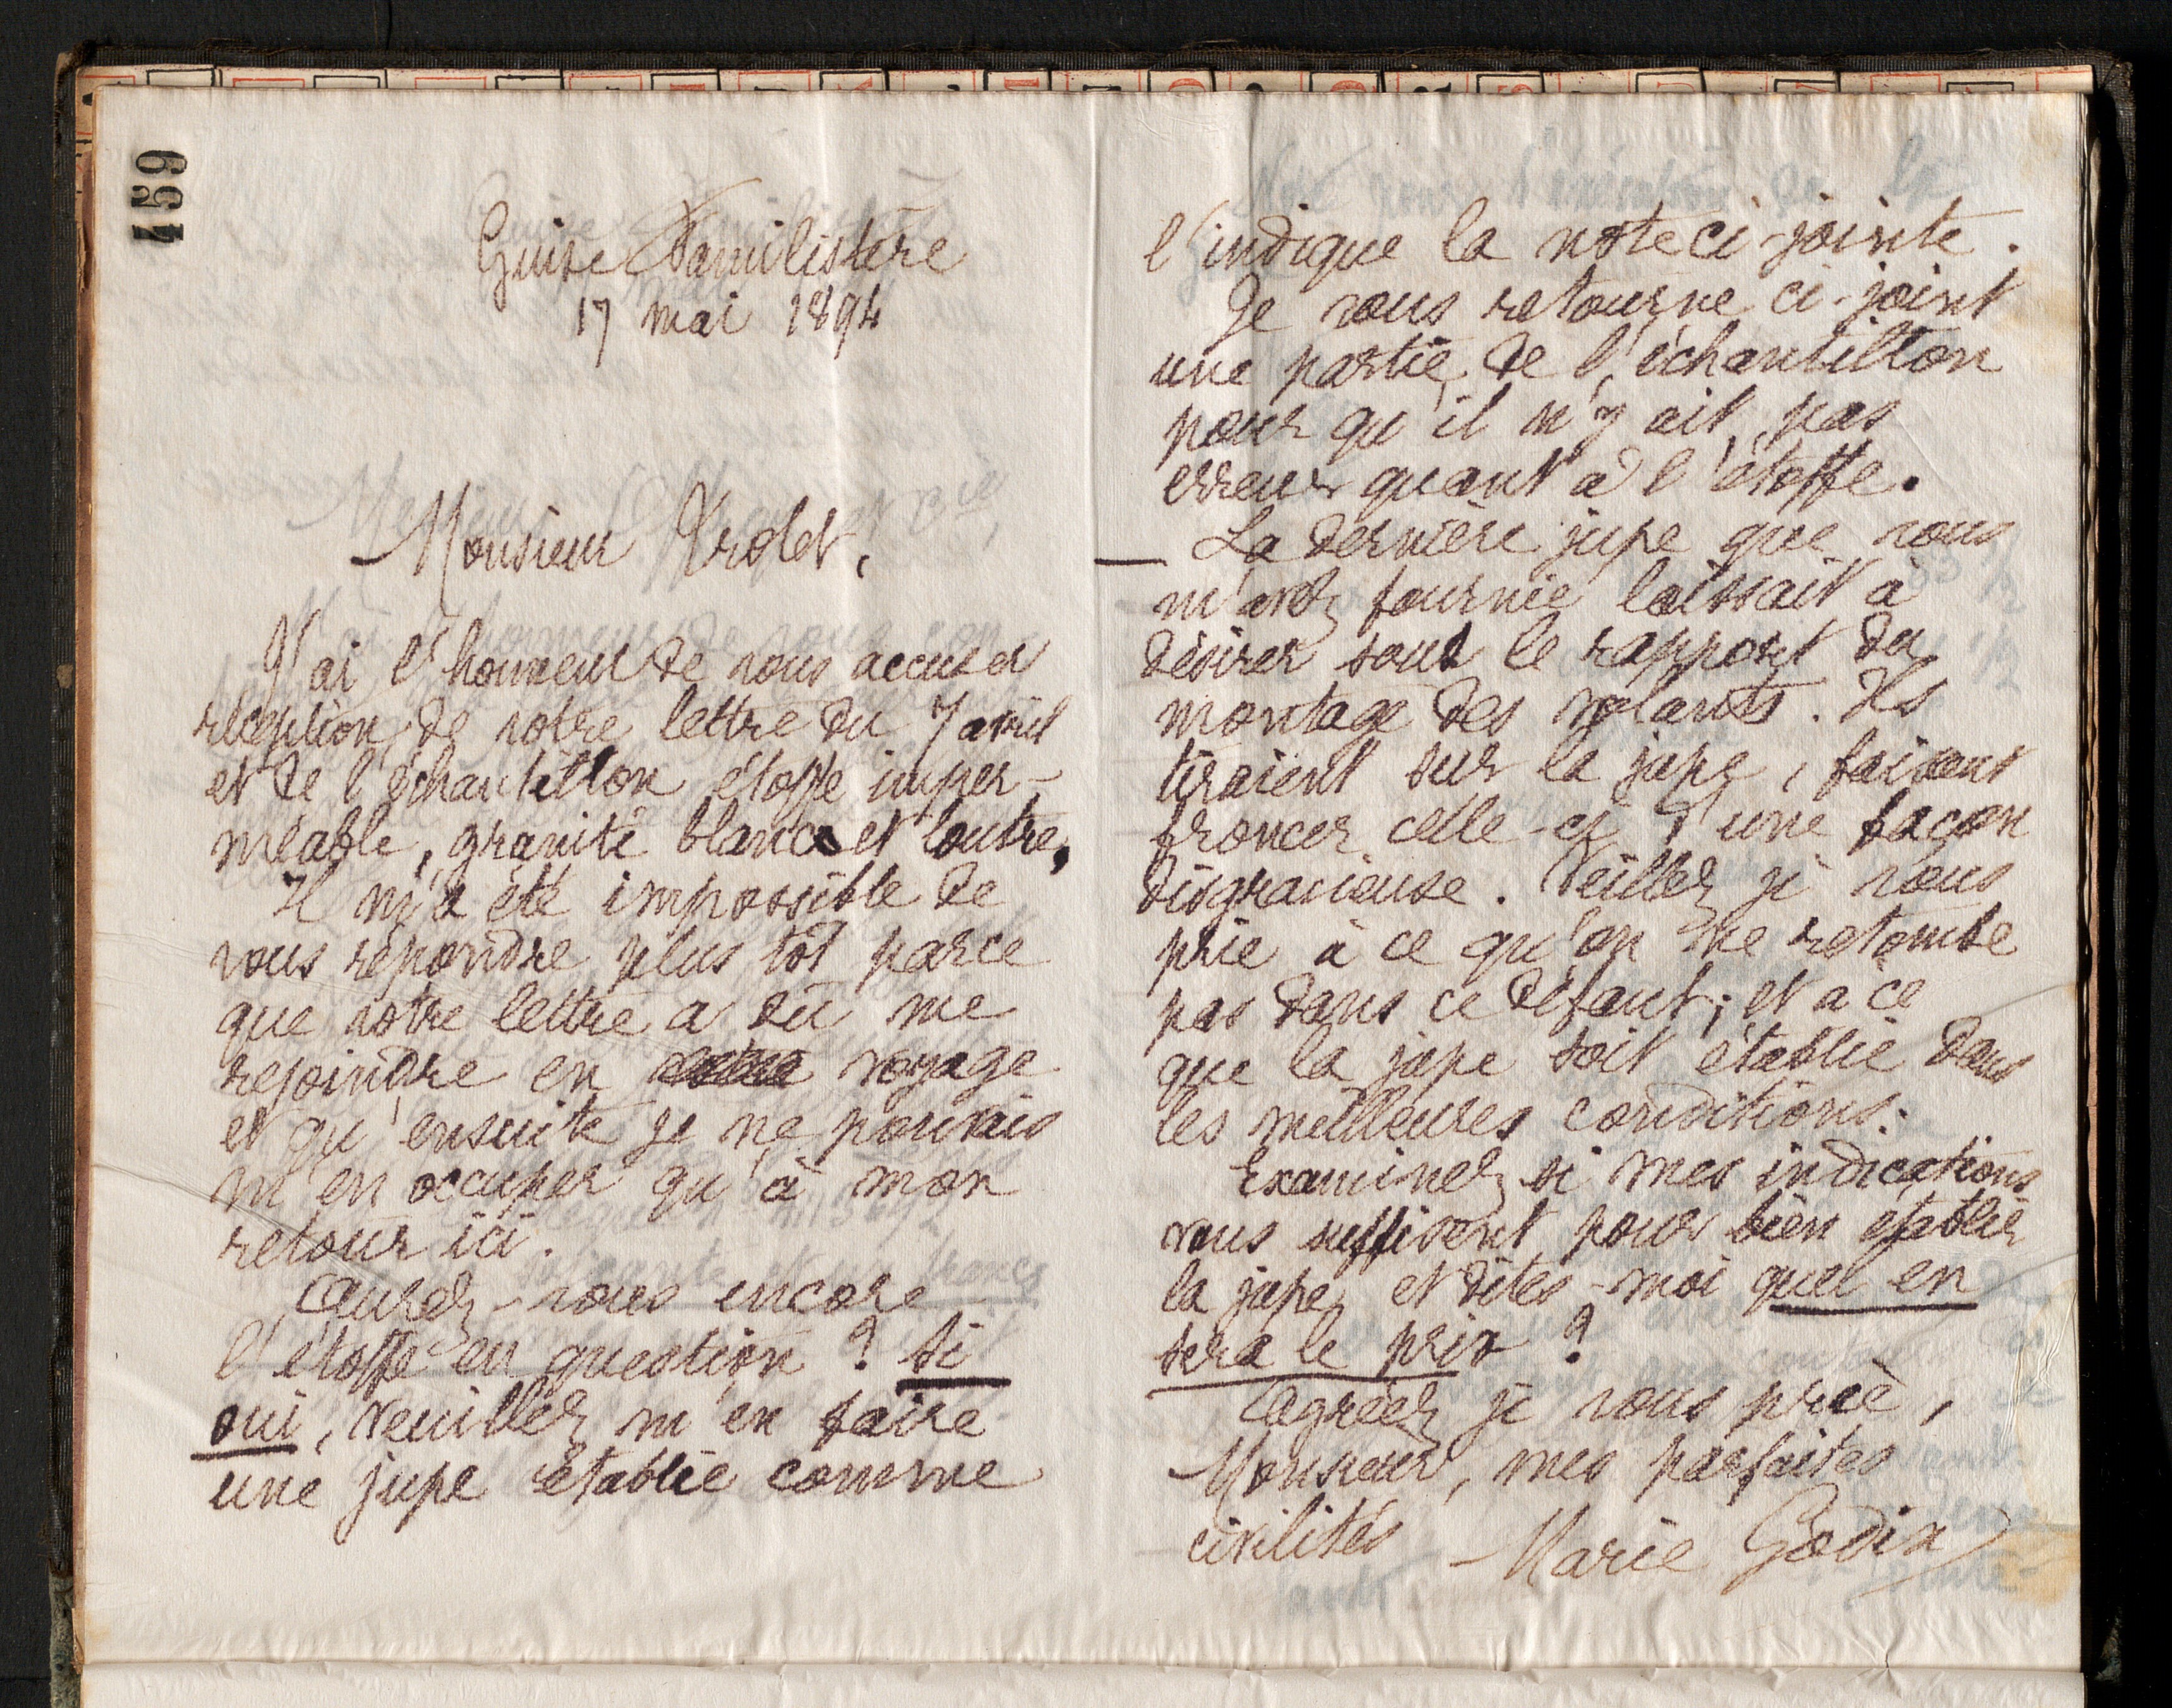 459
Guise Familistère
17 mai 1894
Monsieur
J'ai l'honneur de vous accuser
réception de votre lettre du 7 avril
et de l'échantillon étoffe imper-
méable, granité blanc et loutre,
Il m'a été impossible de
vous répondre plus tôt parce
que votre lettre a dû me
rejoindre en voyage
et qu'ensuite je ne pouvais
m'en occuper qu'à mon
retour ici.
Aurez-vous encore
l'étoffe en question ? Si
oui, veuillez m'en faire
une jupe établie comme
l'indique la note ci-jointe.
Je vous retourne ci-joint
une partie de l'échantillon
pour qu'il n'y ait pas
erreur quant à l'étoffe.
— La dernière jupe que vous
m'avez fournie laissait à
désirer sous le rapport du
montage des volants. Ils
tiraient sur la jupe, faisant
froncer celle-ci d'une façon
disgracieuse. Veillez je vous
prie à ce qu'on ne retombe
pas dans ce défaut ; et à ce
que la jupe soit établie dans
les meilleures conditions.
Examinez si mes indications
vous suffisent pour bien établir
la jupe et dites-moi quel en
sera le prix ?
Agréez je vous prie,
Monsieur, mes parfaites
civilités Marie Godin